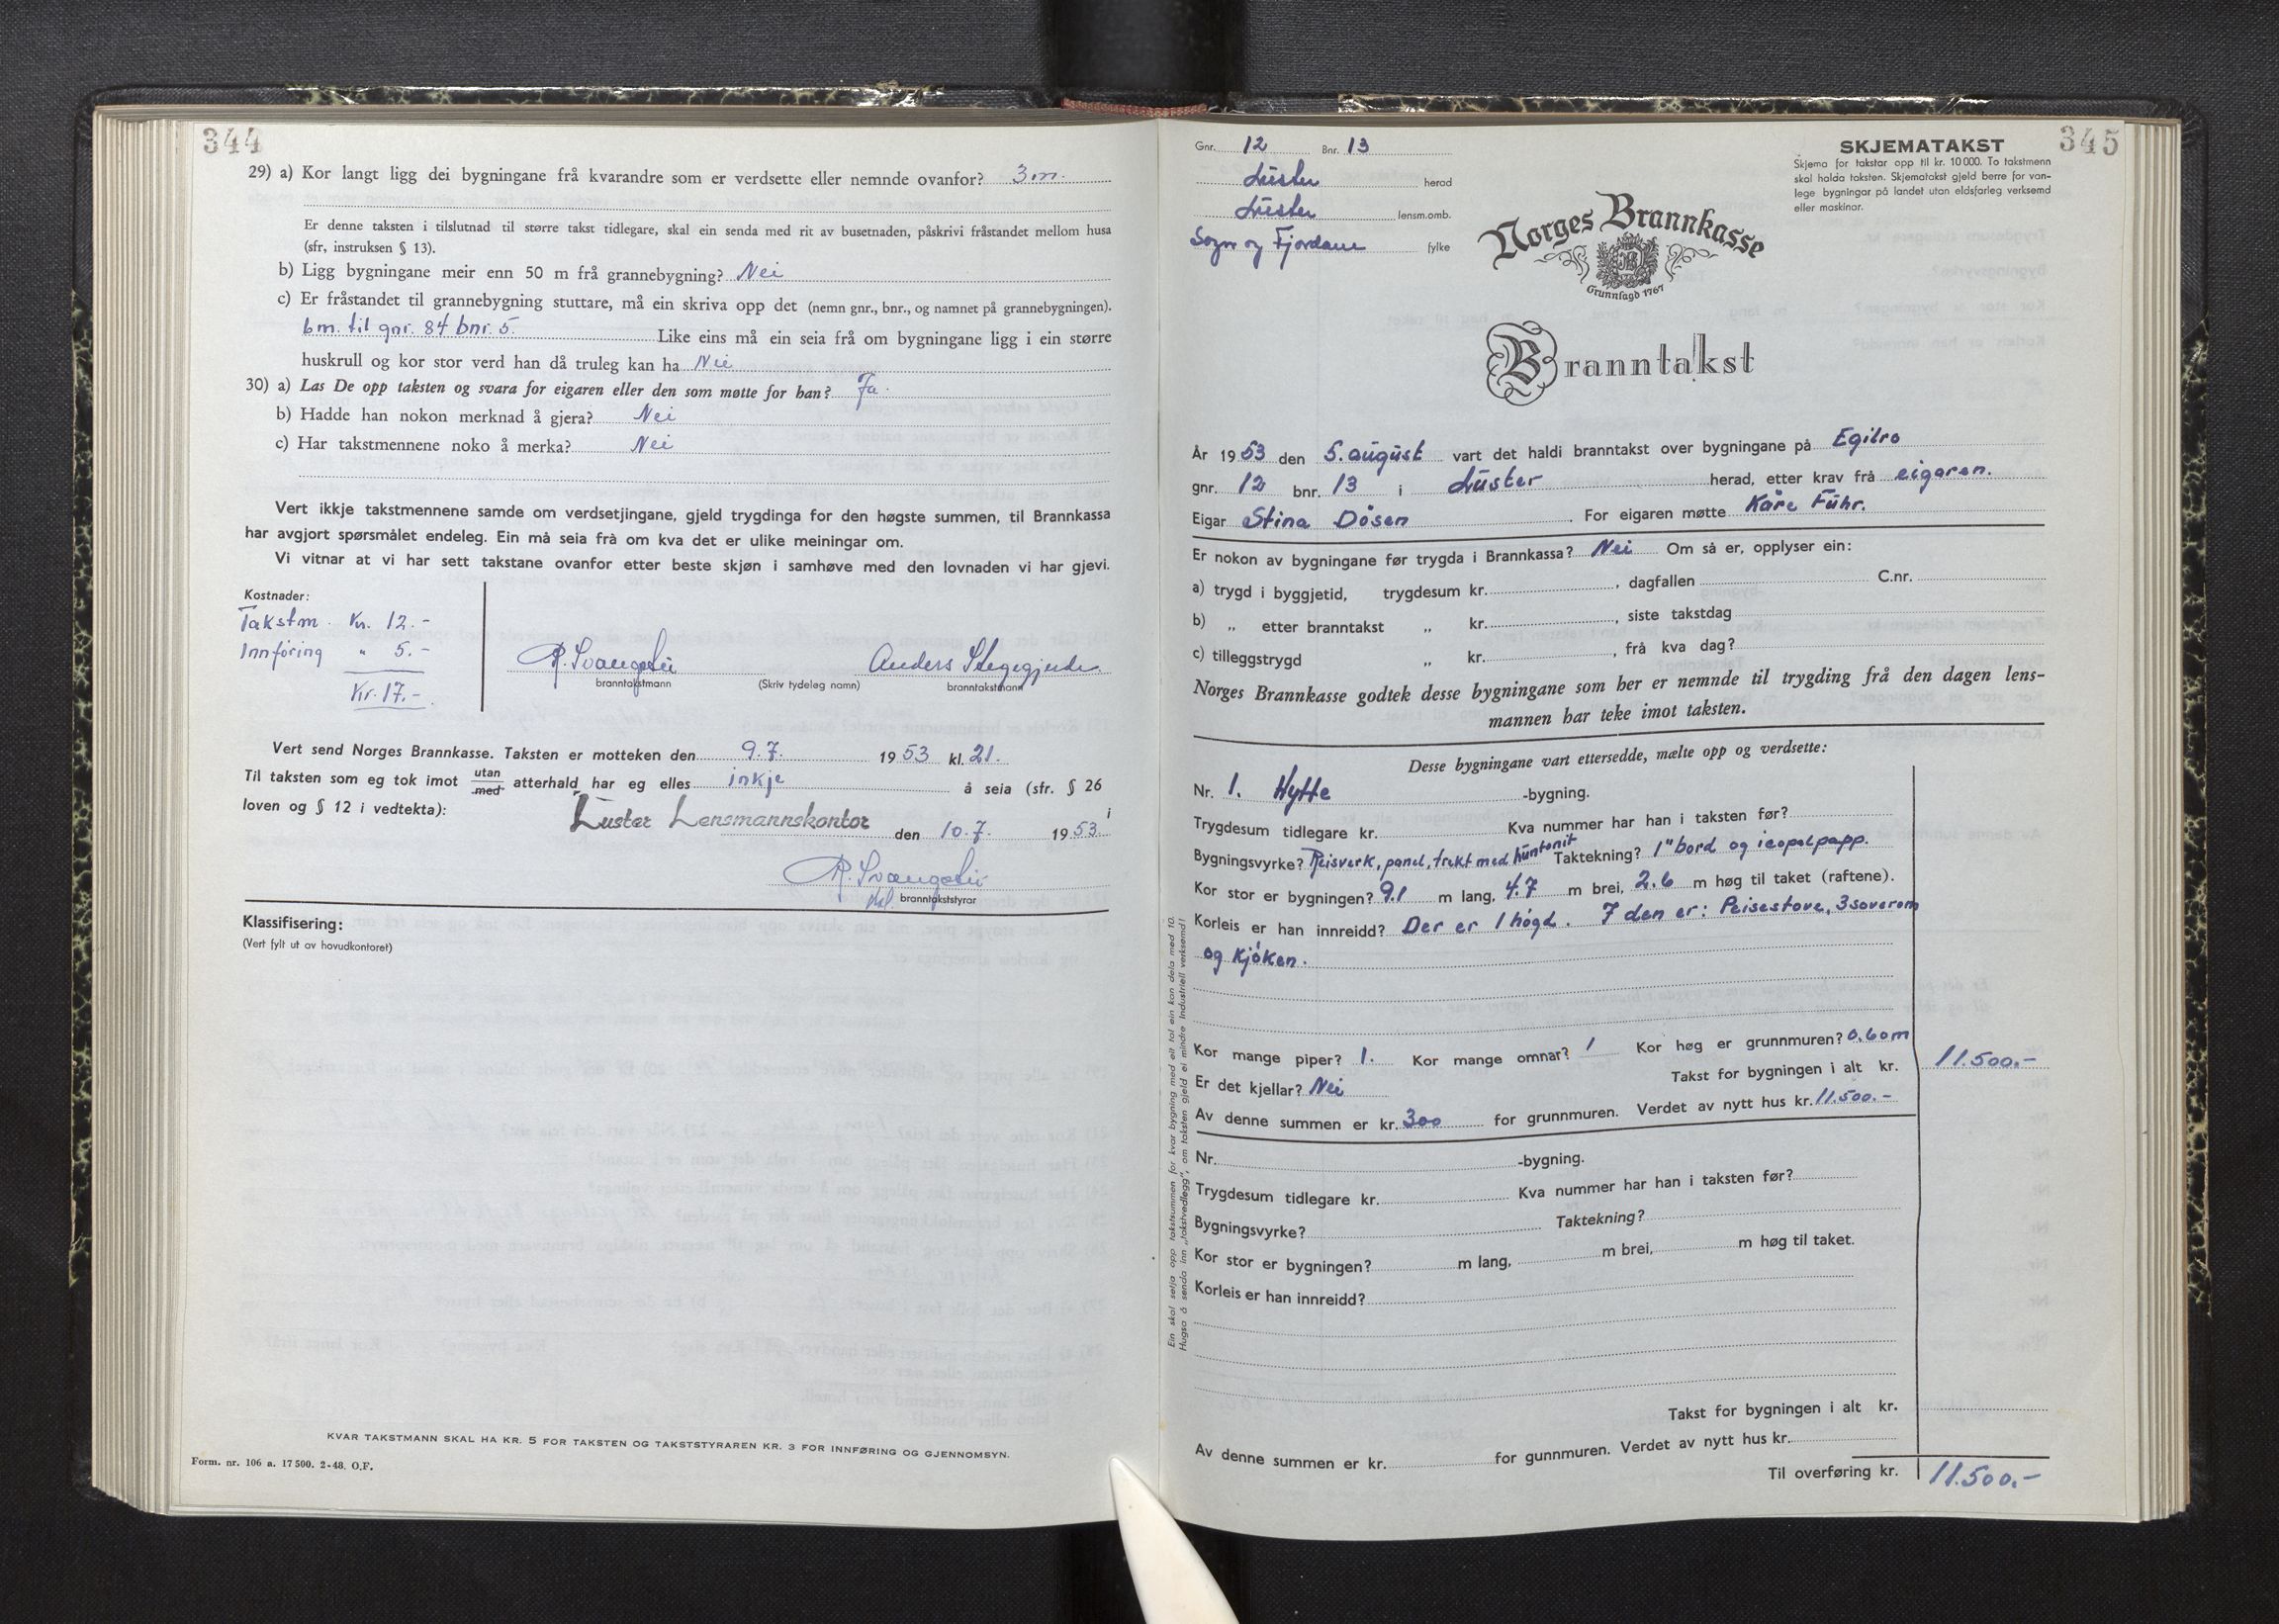 344
29) a) Kor langt ligg dei bygningane frå kvarandre som er verdsette eller nemnde ovanfor? 3 m.
Er denne taksten i tilslutnad til større takst tidlegare, skal ein senda med rit av busetnaden, påskrivi fråstandet mellom husa
(sfr. instruksen § 13).
b) Ligg bygningane meir enn 50 m frå grannebygning? Nei
c) Er fråstandet til grannebygning stuttare, må ein skriva opp det (nemn gnr., bnr., og namnet på grannebygningen).
6 m. til gnr. 84 bnr. 5. Like eins må ein seia frå om bygningane ligg i ein større
huskrull og kor stor verd han då truleg kan ha Nei
30) a) Las De opp taksten og svara for eigaren eller den som møtte for han? Ja.
b) Hadde han nokon merknad å gjera? Nei
c) Har takstmennene noko å merka? Nei
Vert ikkje takstmennene samde om verdsetjingane, gjeld trygdinga for den høgste summen, til Brannkassa
har avgjort spørsmålet endeleg. Ein må seia frå om kva det er ulike meiningar om.
Vi vitnar at vi har sett takstane ovanfor etter beste skjøn i samhøve med den lovnaden vi har gjevi.
Kostnader:
Takstm. Kr. 12.-
Innføring " 5.-
Kr. 17.-
R. Svangstu Anders Stegegjerde
branntakstmann (Skriv tydeleg namn) branntakstmann
Vert send Norges Brannkasse. Taksten er motteken den 9.7. 1953 kl. 21.
Til taksten som eg tok imot utan/med atterhald, har eg elles inkje å seia (sfr. § 26
loven og § 12 i vedtekta):
Luster Lensmannskontor den 10.7. 1953 i
R. Svangstu
branntakststyrar
Klassifisering:
(Vert fylt ut av hovudkontoret)
KVAR TAKSTMANN SKAL HA KR. 5 FOR TAKSTEN OG TAKSTSTYRAREN KR. 3 FOR INNFØRING OG GJENNOMSYN.
Form. nr. 106 a. 17 500. 2-48. O.F.
345
Gnr. 12 Bnr. 13
Luster herad
Luster lensm.omb.
Sogn og Fjordane fylke
SKJEMATAKST
Skjema for takstar opp til kr. 10 000. To takstmenn
skal halda taksten. Skjematakst gjeld berre for van-
lege bygningar på landet utan eldsfarleg verksemd
eller maskinar.
Norges Brannkasse
Grunnlagd 1767
Branntakst
År 1953 den 5. august vart det haldi branntakst over bygningane på Egilro
gnr. 12 bnr. 13 i Luster herad, etter krav frå eigaren.
Eigar Stina Døsen. For eigaren møtte Kåre Fuhr.
Er nokon av bygningane før trygda i Brannkassa? Nei Om så er, opplyser ein:
a) trygd i byggjetid, trygdesum kr. , dagfallen C.nr.
b) „ etter branntakst „ kr. , siste takstdag
c) tilleggstrygd „ kr. , frå kva dag?
Norges Brannkasse godtek desse bygningane som her er nemnde til trygding frå den dagen lens-
mannen har teke imot taksten.
Desse bygningane vart ettersedde, mælte opp og verdsette:
Nr. 1. Hytte -bygning.
Trygdesum tidlegare kr. Kva nummer har han i taksten før?
Bygningsvyrke? Reisverk, panel, trekt med huntonit Taktekning? 1" bord og icopalpapp.
Kor stor er bygningen? 9.1 m lang, 4.7 m brei, 2.6 m høg til taket (raftene).
Korleis er han innreidd? Der er 1 høgd. I den er: Peisestove, 3 soverom
og kjøken.
Kor mange piper? 1. Kor mange omnar? 1 Kor høg er grunnmuren? 0.60 m
Er det kjellar? Nei Takst for bygningen i alt kr. 11.500.-
Av denne summen er kr. 300 for grunnmuren. Verdet av nytt hus kr. 11.500.-
Nr. -bygning.
Trygdesum tidlegare kr. Kva nummer har han i taksten før?
Bygningsvyrke? Taktekning?
Kor stor er bygningen? m lang, m brei, m høg til taket.
Korleis er han innreidd?
Takst for bygningen i alt kr.
Av denne summen er kr. for gunnmuren. Verdet av nytt hus kr.
Til overføring kr. 11.500.-
Ein skal setja opp takstsummen for kvar bygning med eit tal ein kan dela med 10.
Hugsa å senda inn „takstvedlegg", om taksten gjeld ei mindre industriell verksemd!